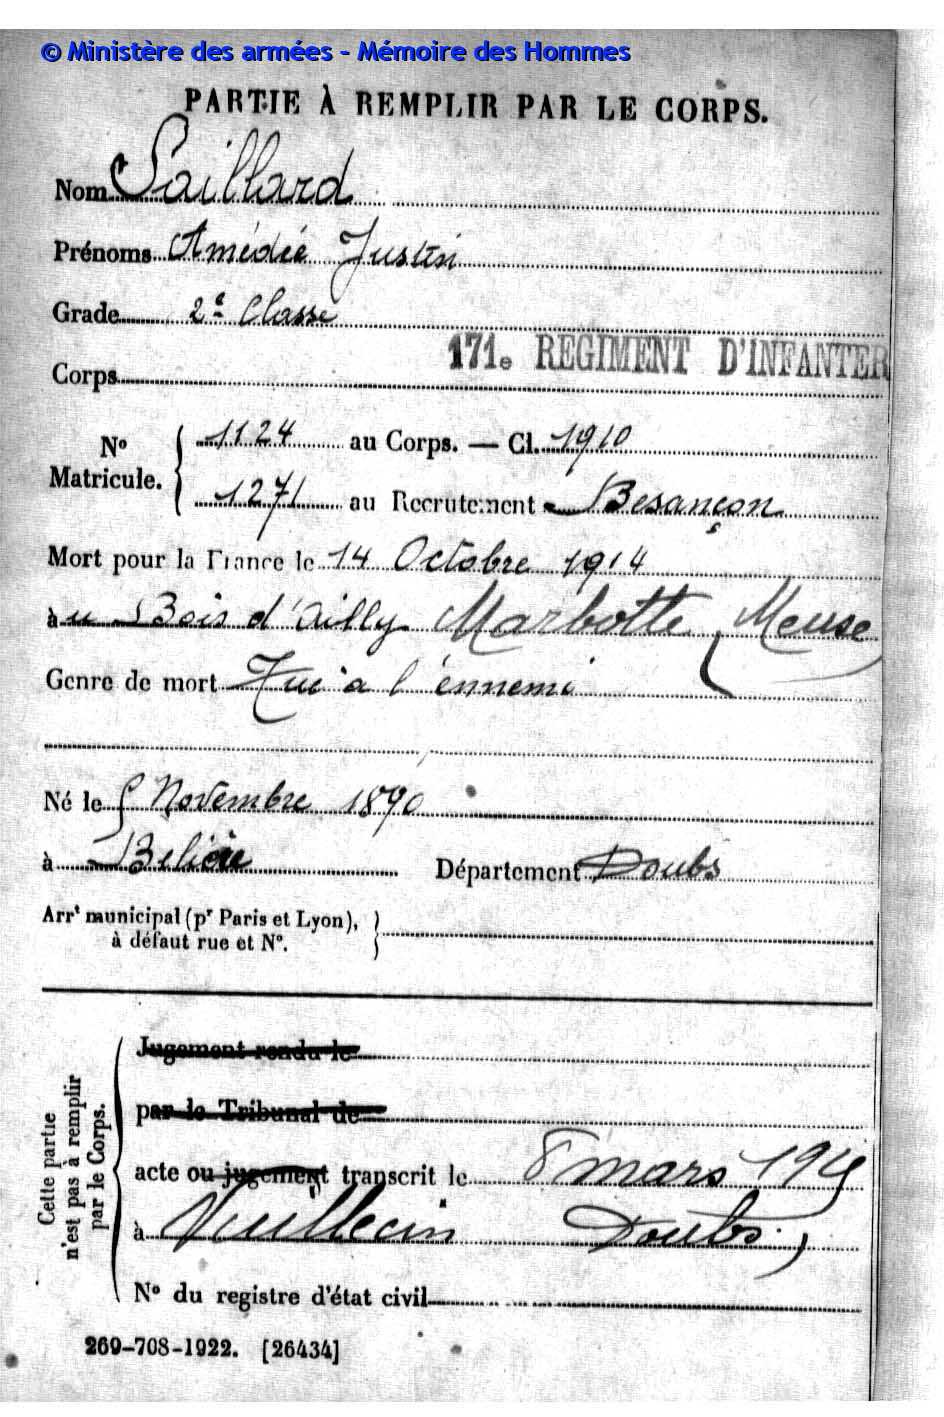 © Ministère des armées - Mémoire des Hommes
PARTIE À REMPLIR PAR LE CORPS.
Nom Saillard
Prénoms Amédée Justin
Grade 2e Classe
171e REGIMENT D'INFANTER
Corps
No 1124 au Corps. — Cl. 1910
Matricule. 1271 au Recrutement Besançon
Mort pour la France le 14 Octobre 1914
au Bois d'Ailly Marbotte (Meuse
Genre de mort Tué à l'ennemi
Né le Novembre 1890
à Département Doubs
Arrt municipal (pr Paris et Lyon),
à défaut rue et No.
Cette partie n'est pas à remplir par le Corps.
Jugement rendu le
par le Tribunal de
acte ou jugement transcrit le 8 mars 191
à Vuillecin Doubs)
No du registre d'état civil
269-708-1922. [26434]